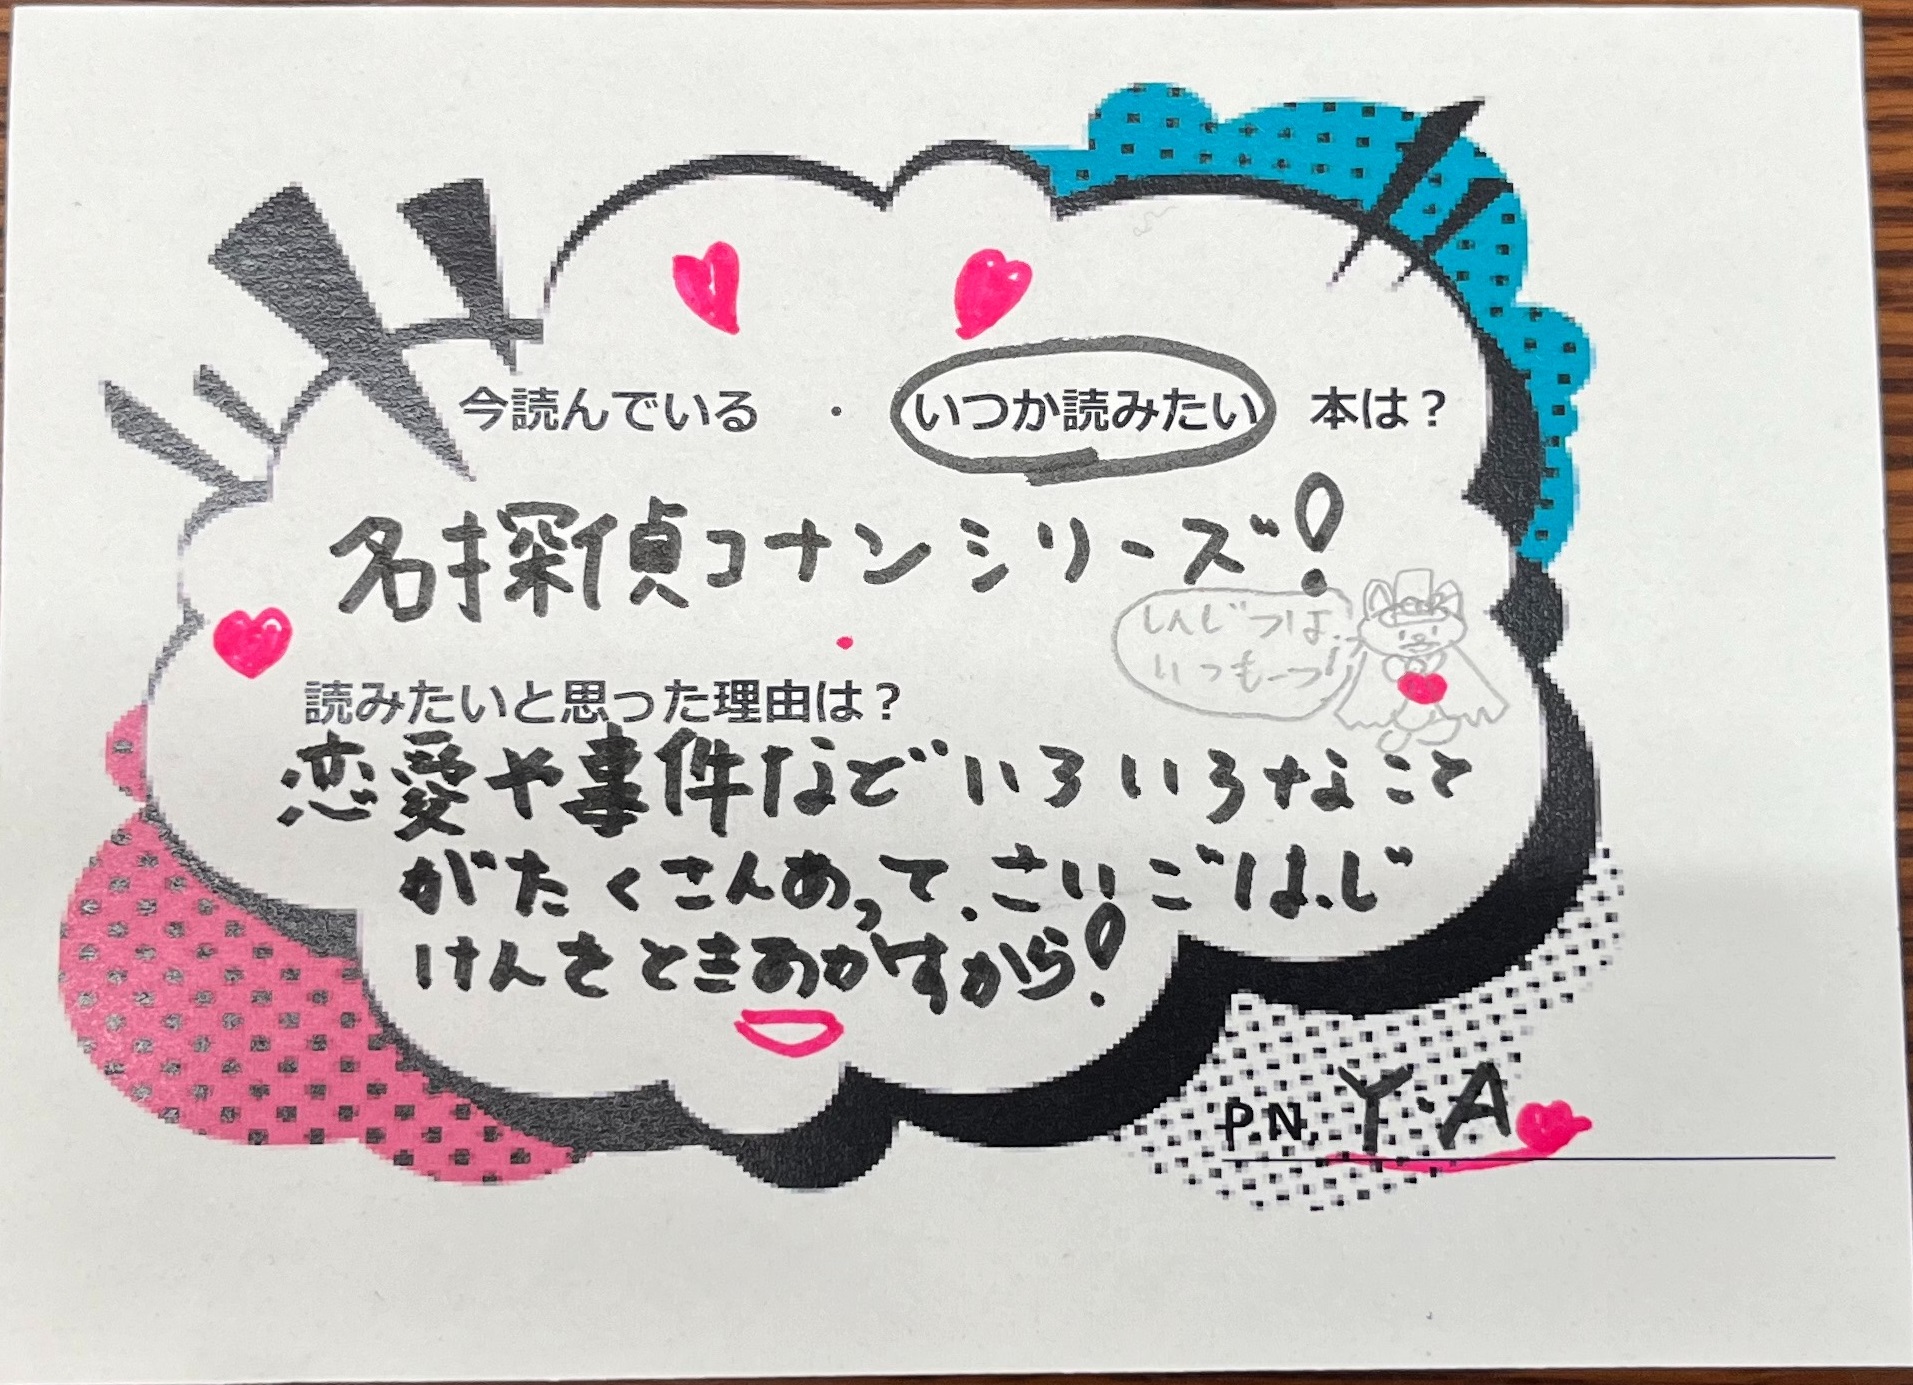 今読んでいる ・ いつか読みたい 本は？
名探偵コナンシリーズ！
しんじつは
いつも一つ！
読みたいと思った理由は？
恋愛や事件などいろいろなこと
がたくさんあって、さいごは、じ
けんをときあかすから！
PN. Y・A